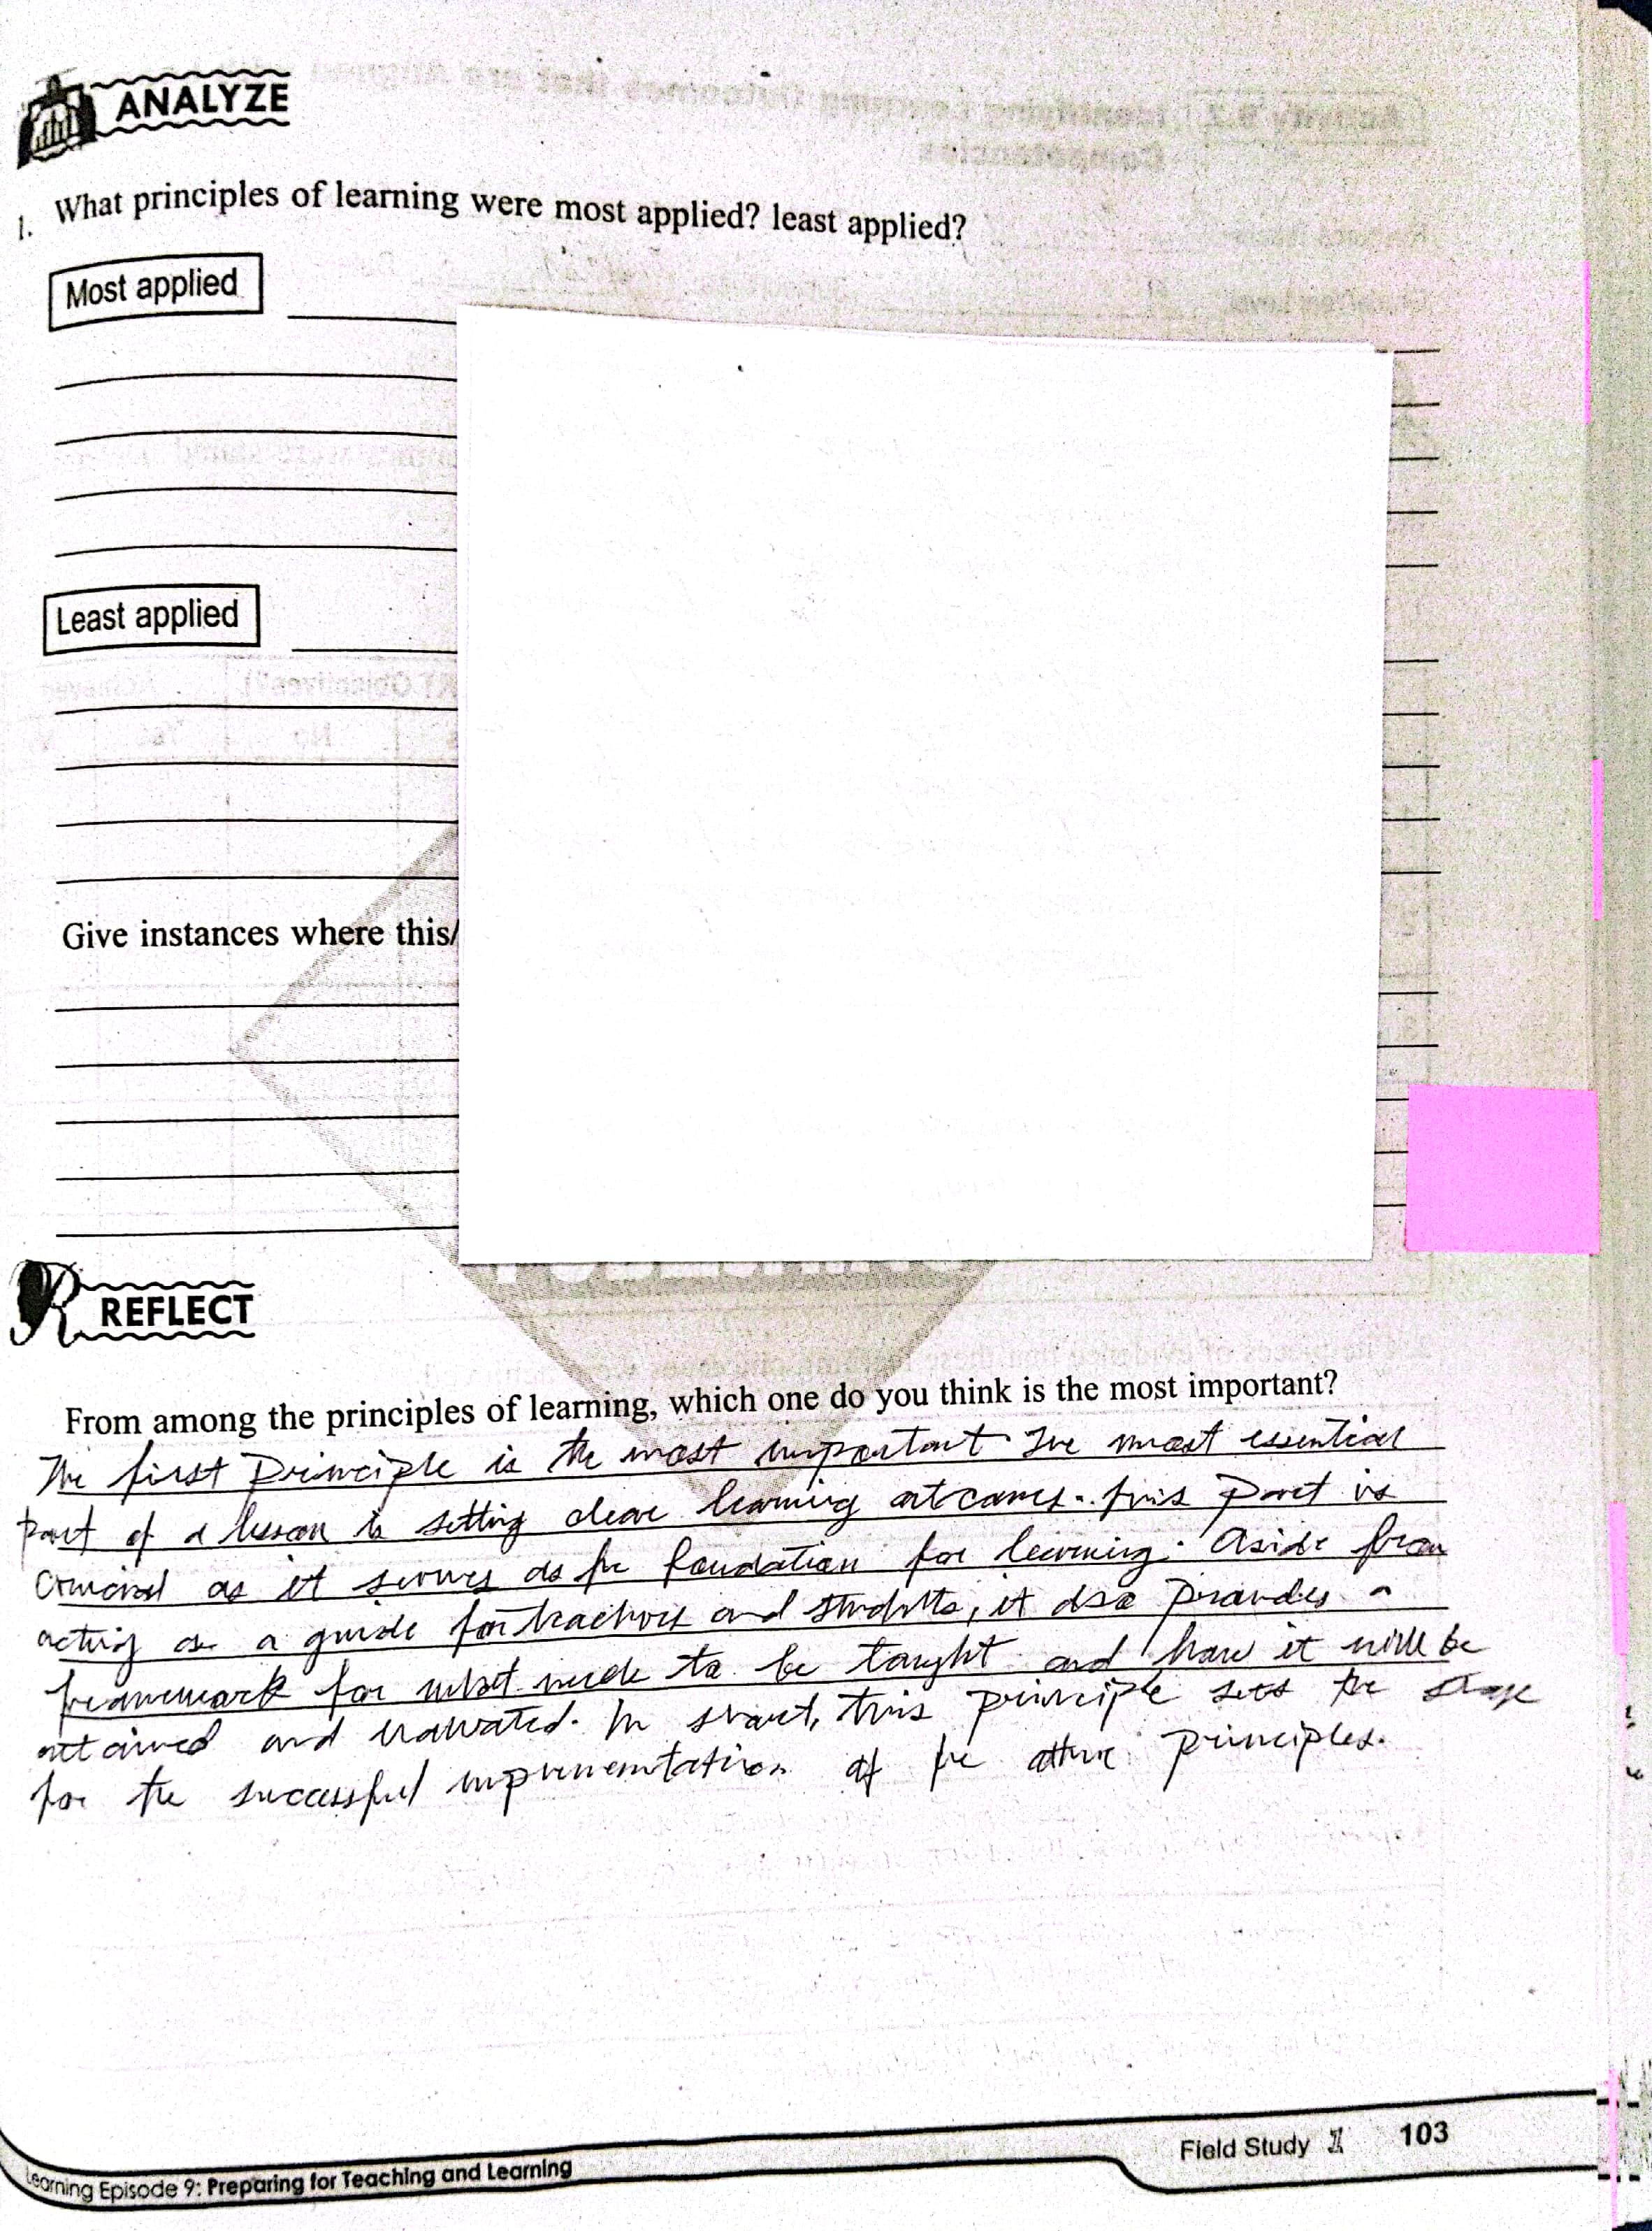 ANALYZE
1. What principles of learning were most applied? least applied?
Most applied
Least applied
Give instances where this/
REFLECT
From among the principles of learning, which one do you think is the most important?
The first principle is the most important. The most essential
part of a lesson is setting clear learning outcomes. This part is
crucial as it serves as the foundation for learning. Aside from
acting as a guide for teachers and students, it also provides a
framework for what needs to be taught and how it will be
attained and evaluated. In short, this principle sets the stage
for the successful implementation of the other principles.
Field Study 1 103
Learning Episode 9: Preparing for Teaching and Learning